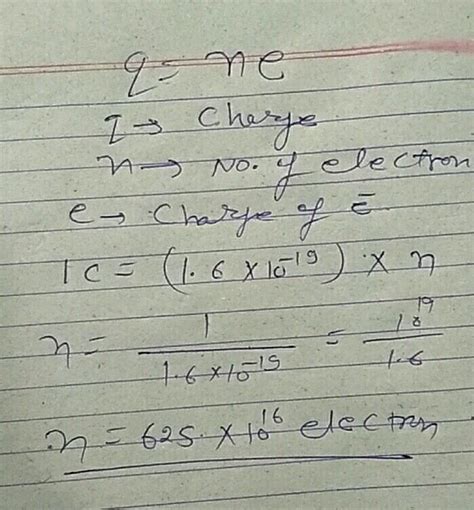 q = ne
q → Charge
n → No. of electron
e → Charge of ē
1 C = (1.6 × 10⁻¹⁹) × n
n = 1 / 1.6 × 10⁻¹⁹ = 10¹⁹ / 1.6
n = 625 × 10¹⁶ electron